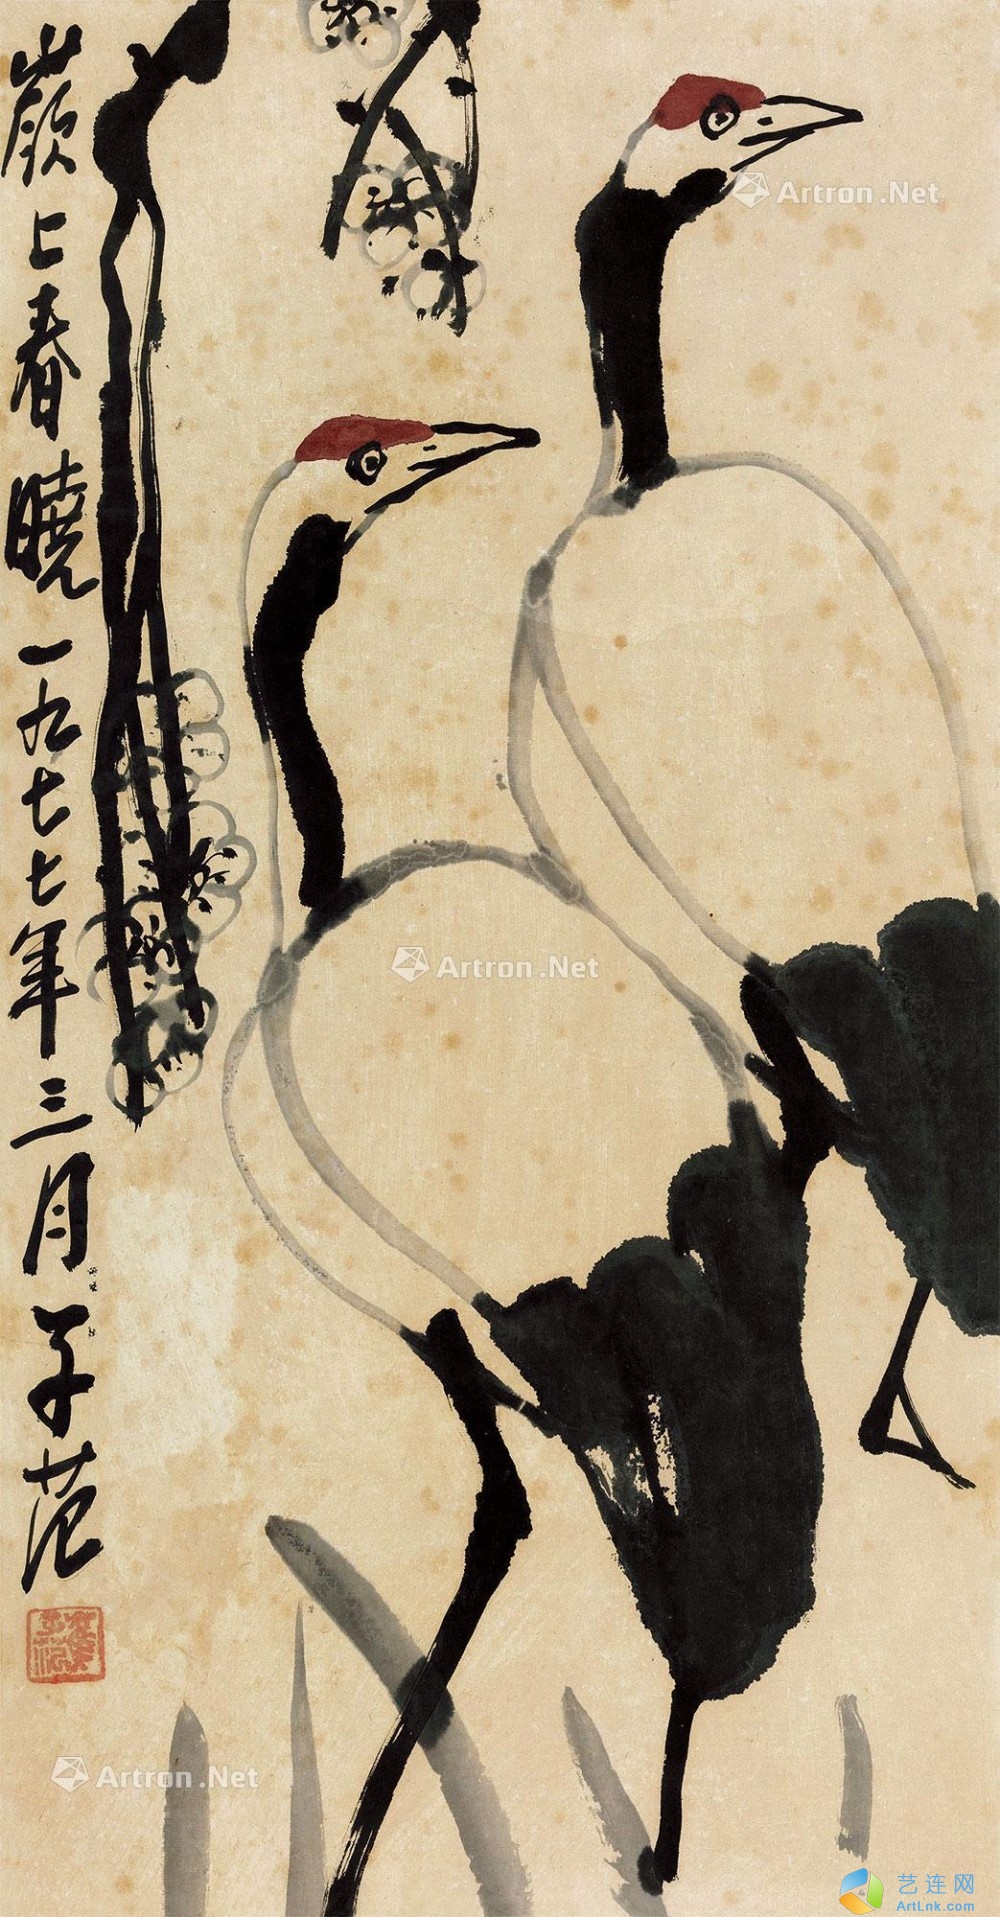 嶺上春曉 一九七七年三月 子范
Artron.Net
Artron.Net
Artron.Net
艺连网
ArtLnk.com